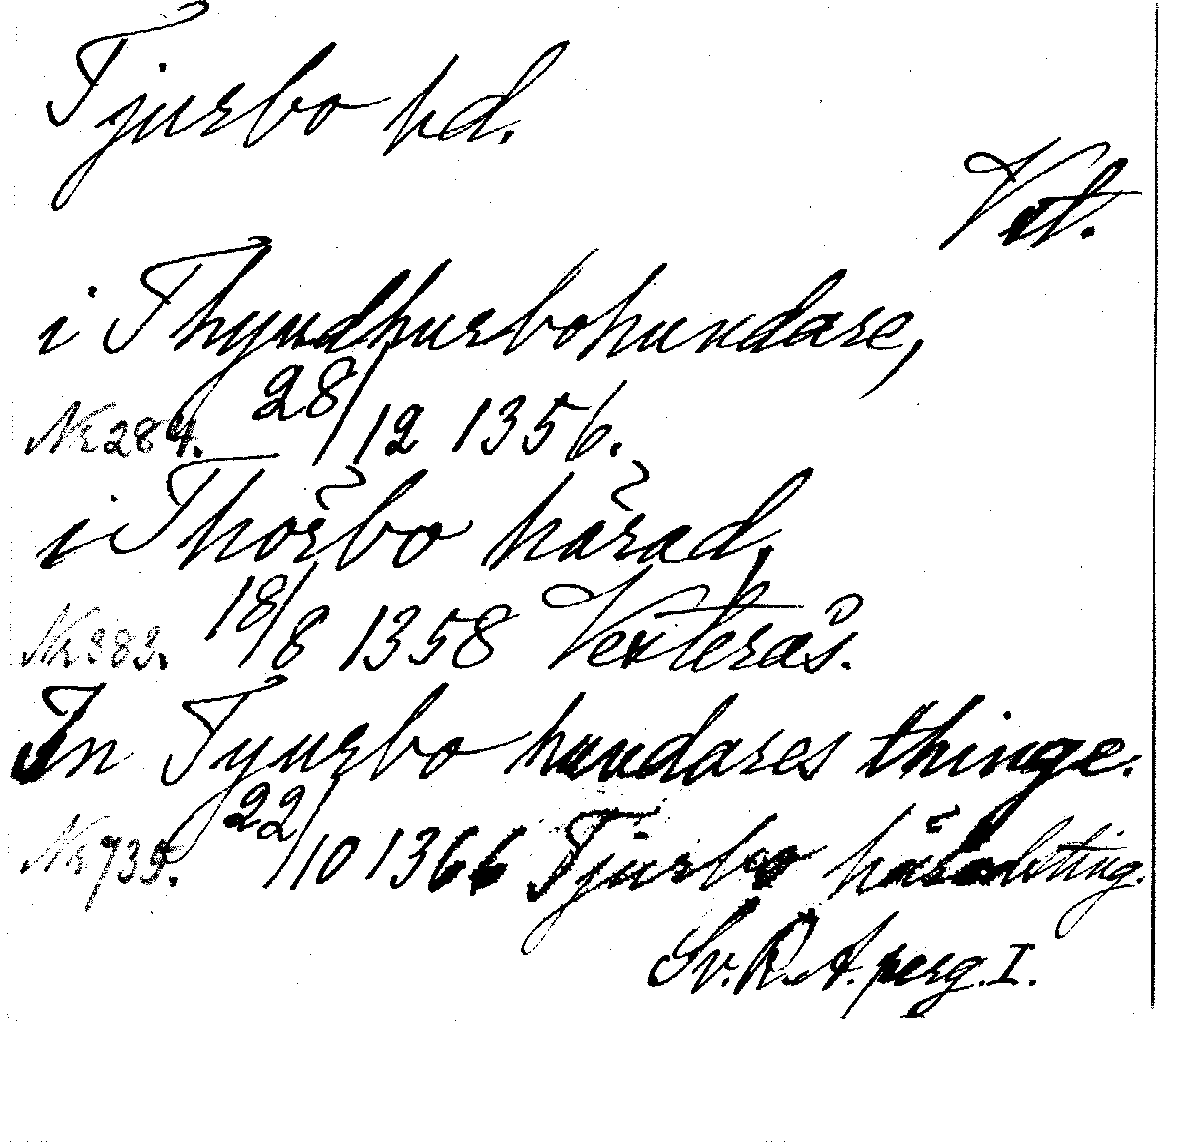 Tjurbo hd.
Vstl.
i Thyudhurbohundare,
Nr 284. 28/12 1356.
i Thörbo härad,
Nr 383. 18/8 1358 Vexterås.
In Tyurbo hundares thinge.
Nr 735. 22/10 1366 Tjurbo häradsting.
Sv. R. A. perg. I.